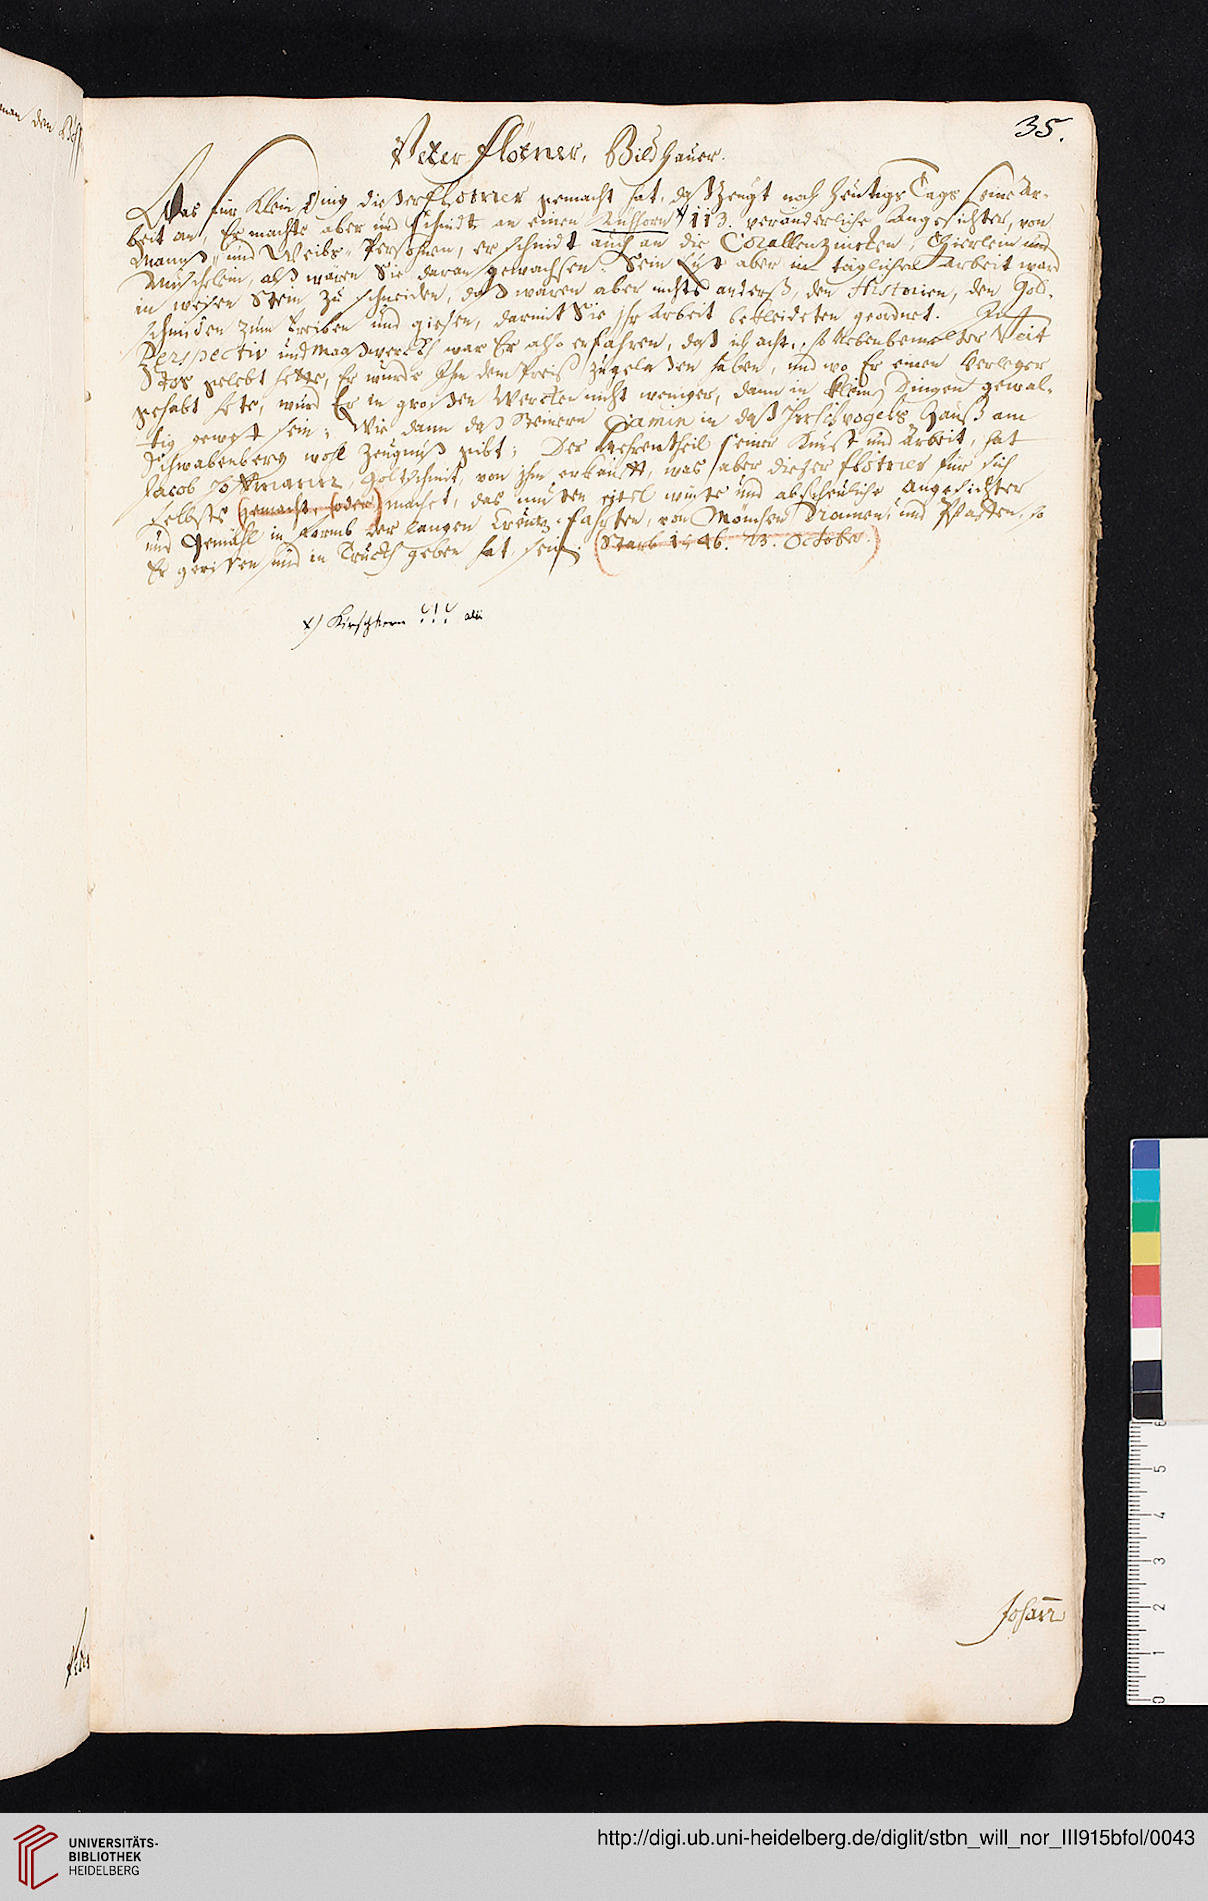 man den
35.
Peter Flötner, Bildhauer.
Was für klein Ding dieser Flötner gemacht hat, daß Zeugt noch heutigs Tags seine Ar-
beit an, Er machte aber und schnidt an einen Kühhorn x 113. veränderliche Angesichter, von
Manns- und Weibs-Persohnen, er schnidt auch an die Corallenzincken, Thierlein und
Müschelein, alß waren Sie daran gewachsen: Sein Lust aber in täglicher Arbeit ward
in weisen Stein zu schneiden, daß waren aber nichts anderß, den Historien, den Gold-
schmiden zum Treiben und giesen, darmit Sie ihr Arbeit bekleideten geordnet. In
Perspectiv und Maaßwerckh war Er also erfahren, daß ich acht, so Nebenbemelter Veit
Stos gelebt hette, Er wurde Ihm dem Preiß zugelaßen haben, und wo Er einen Verleger
gehabt hete, wurd Er in großen Wercken nicht weniger, dann in kleinen Dingen gewal-
tig gewest sein; Wie dann daß Steinern Camin in daß Hirschvogels Hauß am
Schwabenberg wohl Zeugnuß gibt; Der Mehrentheil seiner Kunst und Arbeit, hat
Jacob Hoffmann, Goltschmit, von ihm erkaufft, was aber dieser Flötner für sich
selbsts (gemacht, oder) machet, das musten eitel wüste und abscheuliche Angesichter
und Gemähl in Formb der langen Creutz-Fahrten, von Mönchen Nonnen, und Pfaffen, so
Er gerißen und in Truckh geben hat, sein. (Starb 1546. 23. October)
x) Kirschkern !!! alii
Johann
UNIVERSITÄTS-
BIBLIOTHEK
HEIDELBERG
http://digi.ub.uni-heidelberg.de/diglit/stbn_will_nor_III915bfol/0043
6
5
4
3
2
1
0